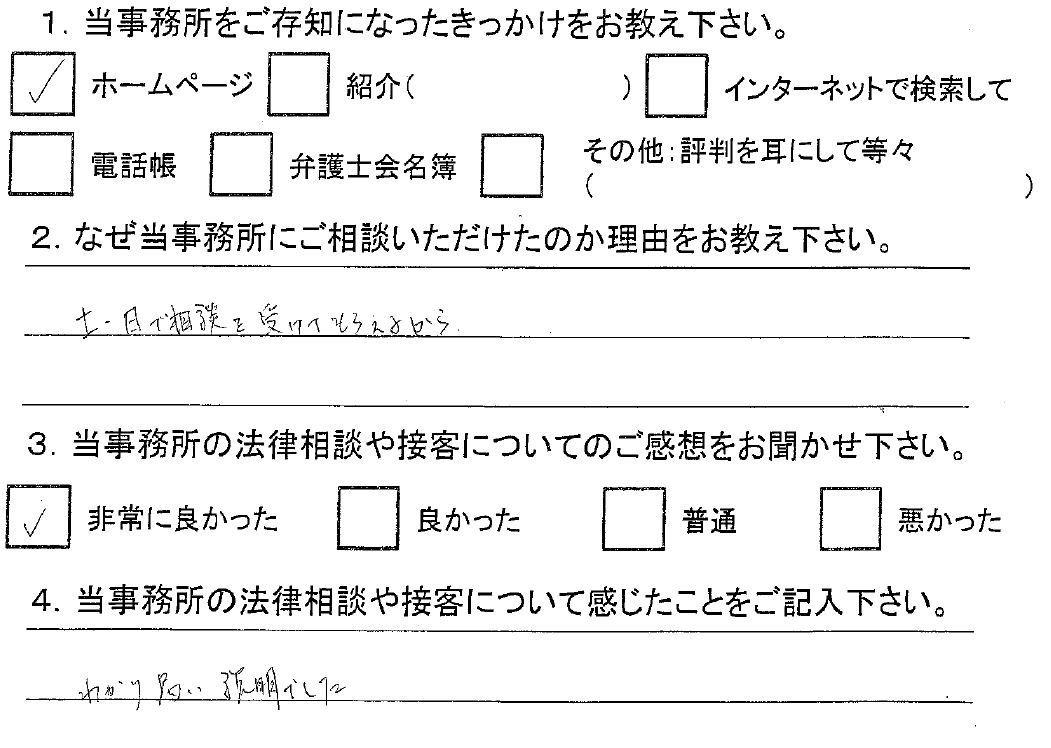 1. 当事務所をご存知になったきっかけをお教え下さい。
✓ ホームページ □ 紹介( ) □ インターネットで検索して
□ 電話帳 □ 弁護士会名簿 □ その他:評判を耳にして等々
( )
2. なぜ当事務所にご相談いただけたのか理由をお教え下さい。
土・日で相談を受けてもらえるから.
3. 当事務所の法律相談や接客についてのご感想をお聞かせ下さい。
✓ 非常に良かった □ 良かった □ 普通 □ 悪かった
4. 当事務所の法律相談や接客について感じたことをご記入下さい。
わかり易い説明でした